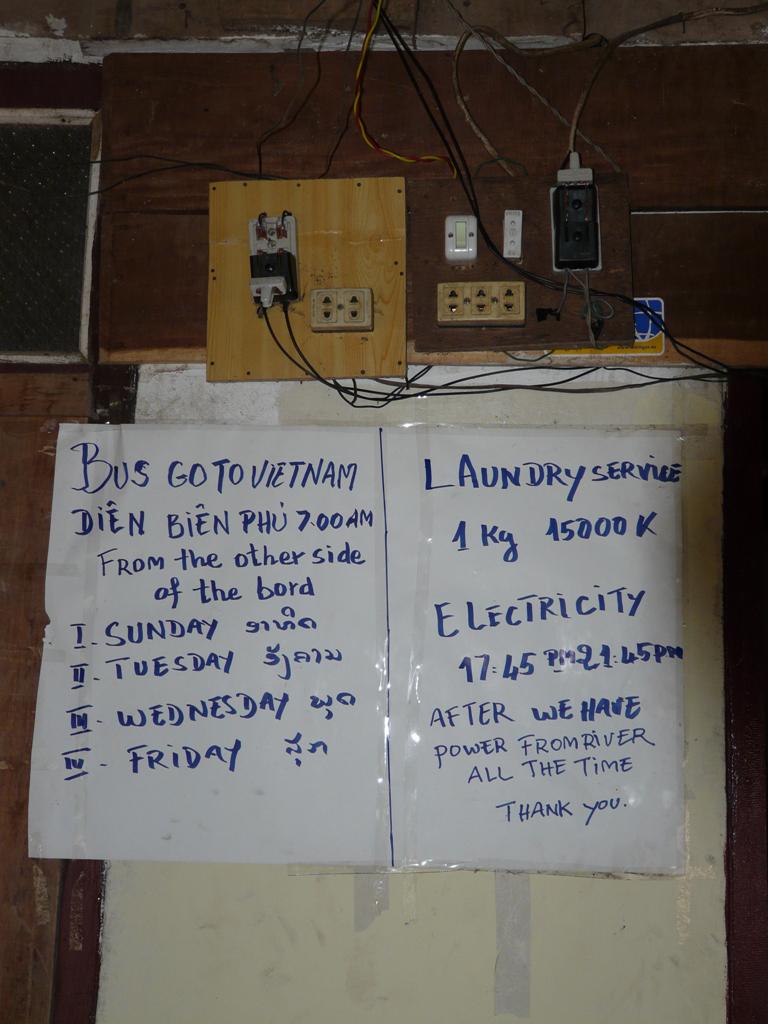 BUS GO TO VIETNAM
DIÊN BIÊN PHỦ 7.00 AM
FROM the other side
of the bord
I. SUNDAY ອາທິດ
II. TUESDAY ອັງຄານ
III. WEDNESDAY ພຸດ
IV. FRIDAY ສຸກ
LAUNDRY SERVICE
1 Kg 15000 K
ELECTRICITY
17:45 PM-21:45PM
AFTER WE HAVE
POWER FROM RIVER
ALL THE TIME
THANK YOU.